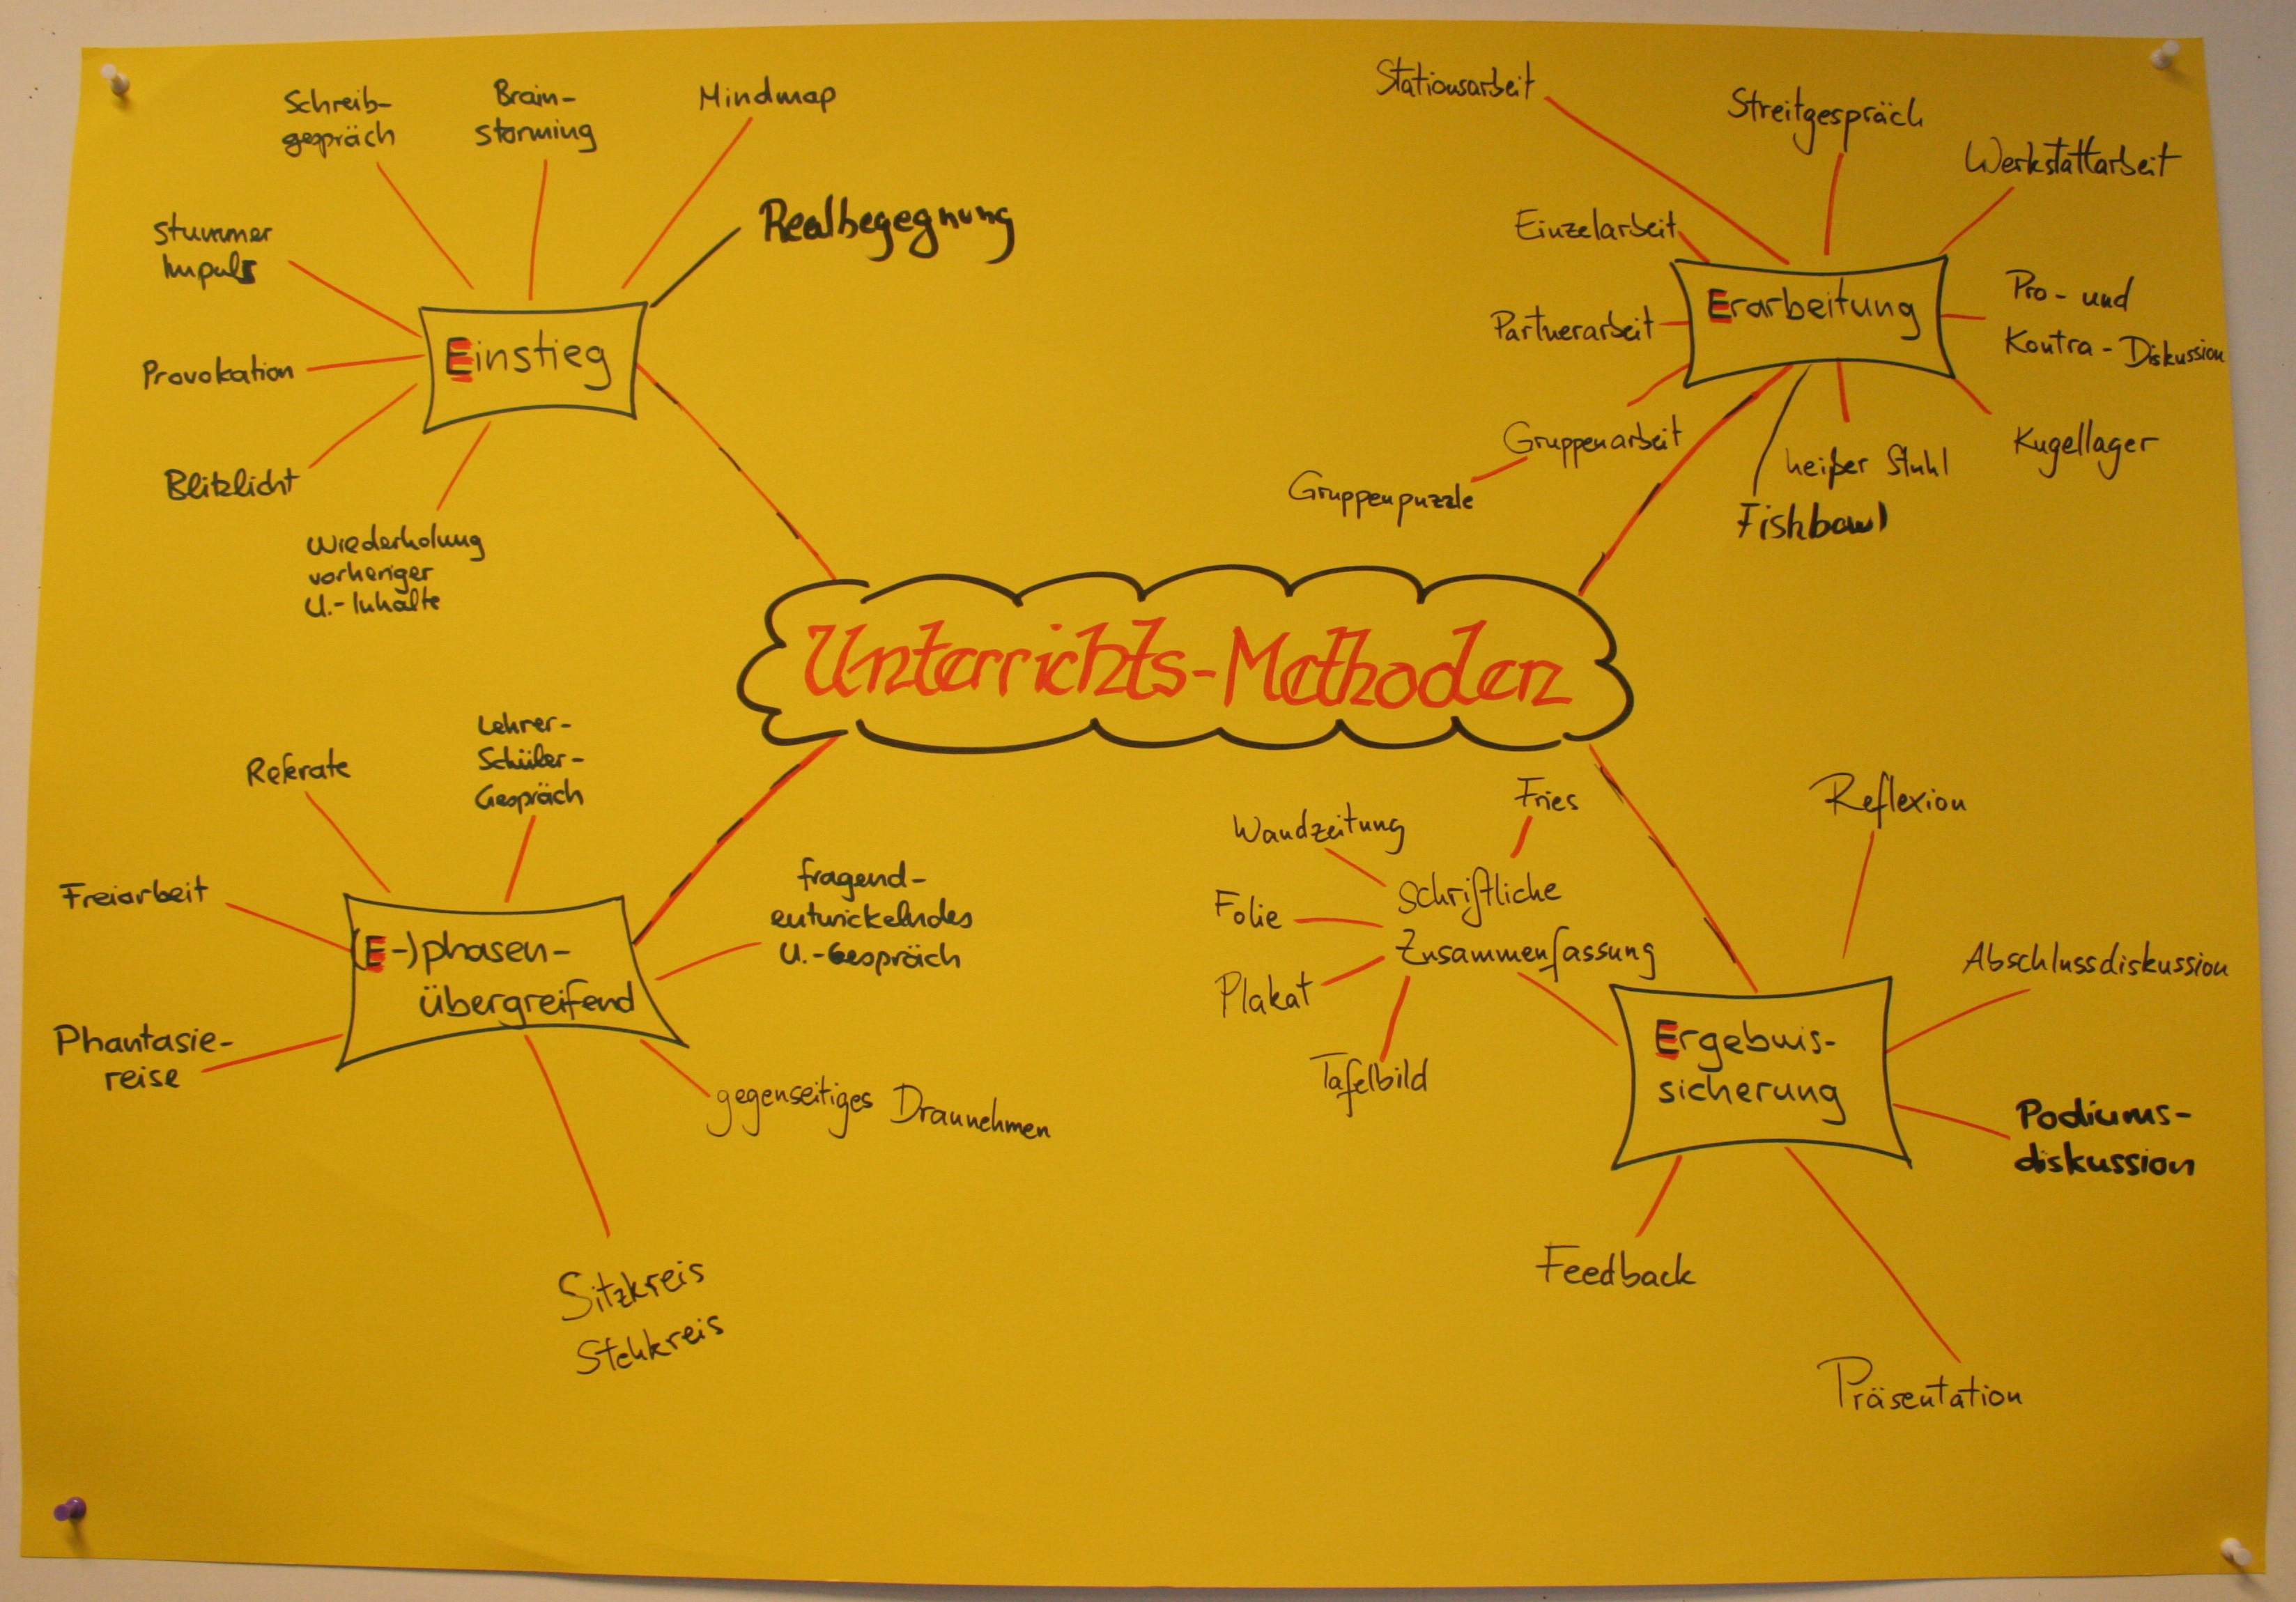 Unterrichts-Methoden
Einstieg
stummer
Impuls
Schreib-
gespräch
Brain-
storming
Mindmap
Realbegegnung
Provokation
Blitzlicht
Wiederholung
vorheriger
U.-Inhalte
Erarbeitung
Stationsarbeit
Streitgespräch
Werkstattarbeit
Einzelarbeit
Partnerarbeit
Gruppenarbeit
Gruppenpuzzle
Pro- und
Kontra-Diskussion
Kugellager
heißer Stuhl
Fishbowl
(E-)phasen-
übergreifend
Referate
Lehrer-
Schüler-
Gespräch
Freiarbeit
Phantasie-
reise
fragend-
entwickelndes
U.-Gespräch
gegenseitiges Drannehmen
Sitzkreis
Stehkreis
Ergebnis-
sicherung
Schriftliche
Zusammenfassung
Fries
Wandzeitung
Folie
Plakat
Tafelbild
Reflexion
Abschlussdiskussion
Podiums-
diskussion
Feedback
Präsentation